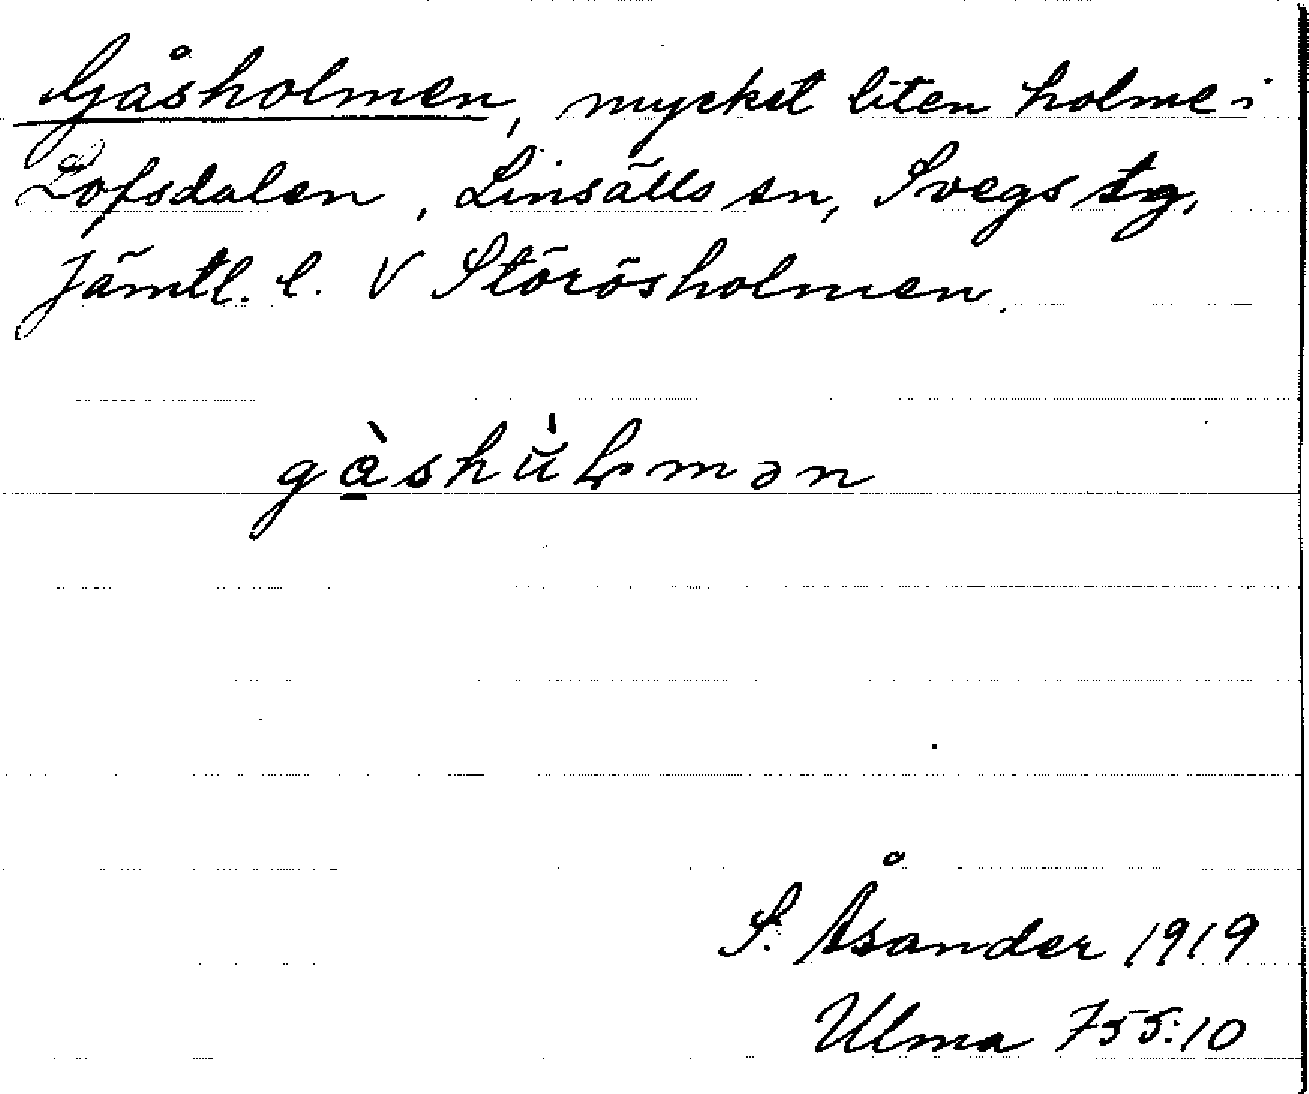 Gåsholmen, mycket liten holme i
Lofsdalen, Linsälls sn, Svegs tg,
Jämtl. l. V Störösholmen.
gàshùꞎmən
S. Åsander 1919
Ulma 755:10